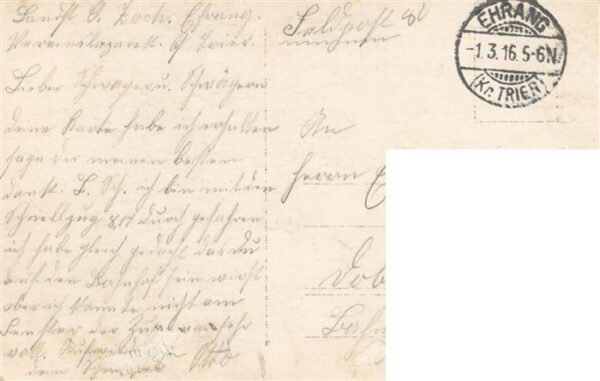 Landst O. Zoch. Ehrang.
Vereinslazarett. bei Trier.
Lieber Schwager u. Schwägerin
deine Karte habe ich erhalten
sage dir meinen besten
dank. L. Sch. ich bin mit den
Schnellzug 8,17 durch gefahren
ich habe gleich gedacht das du
auf den Bahnhof sein wirst
aber ich konnte nicht am
Fenster der Zug war sehr
voll.
dein Schwager Otto
Feldpost
EHRANG
-1.3.16.5-6N
(Kr. TRIER)
An
Herrn
Dob
Bahn